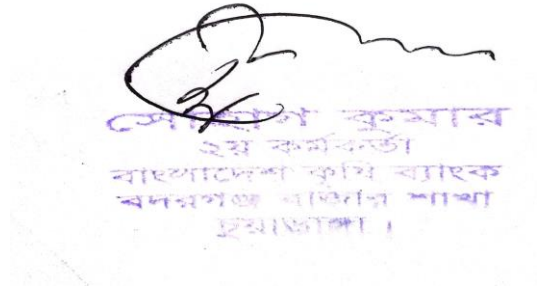 সোহাগ কুমার
২য় কর্মকর্তা
বাংলাদেশ কৃষি ব্যাংক
বদরগঞ্জ বাজার শাখা
চুয়াডাঙ্গা ।